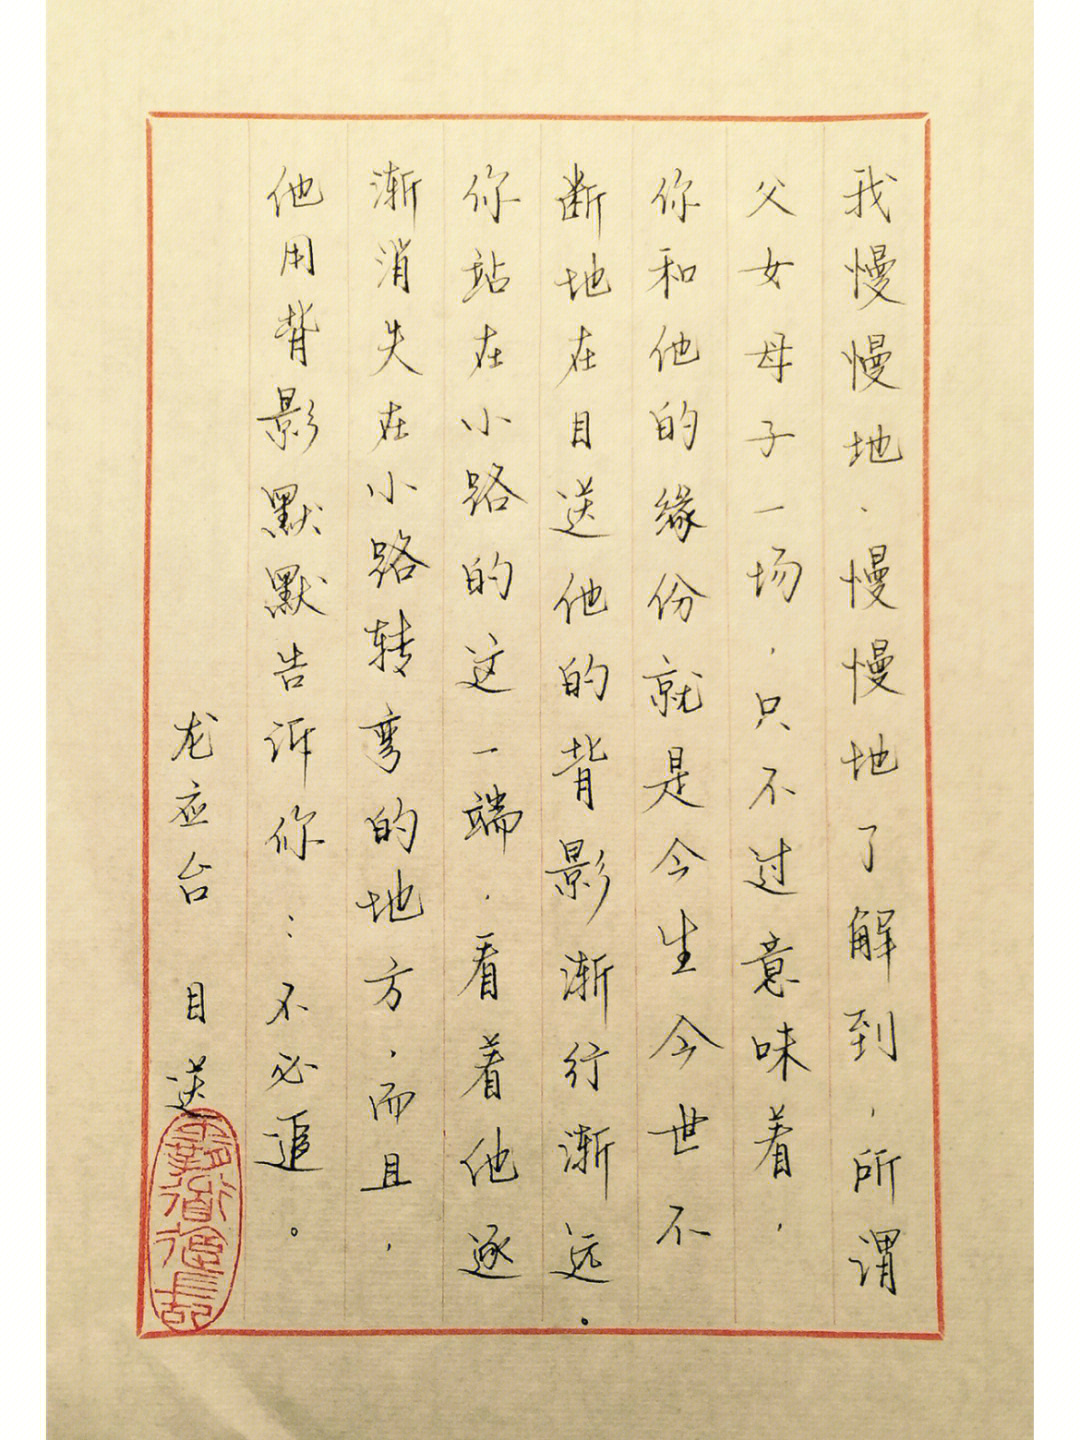 我慢慢地．慢慢地了解到，所谓
父女母子一场，只不过意味着，
你和他的缘份就是今生今世不
断地在目送他的背影渐行渐远．
你站在小路的这一端．看着他逐
渐消失在小路转弯的地方，而且，
他用背影默默告诉你：不必追。
龙应台 目送